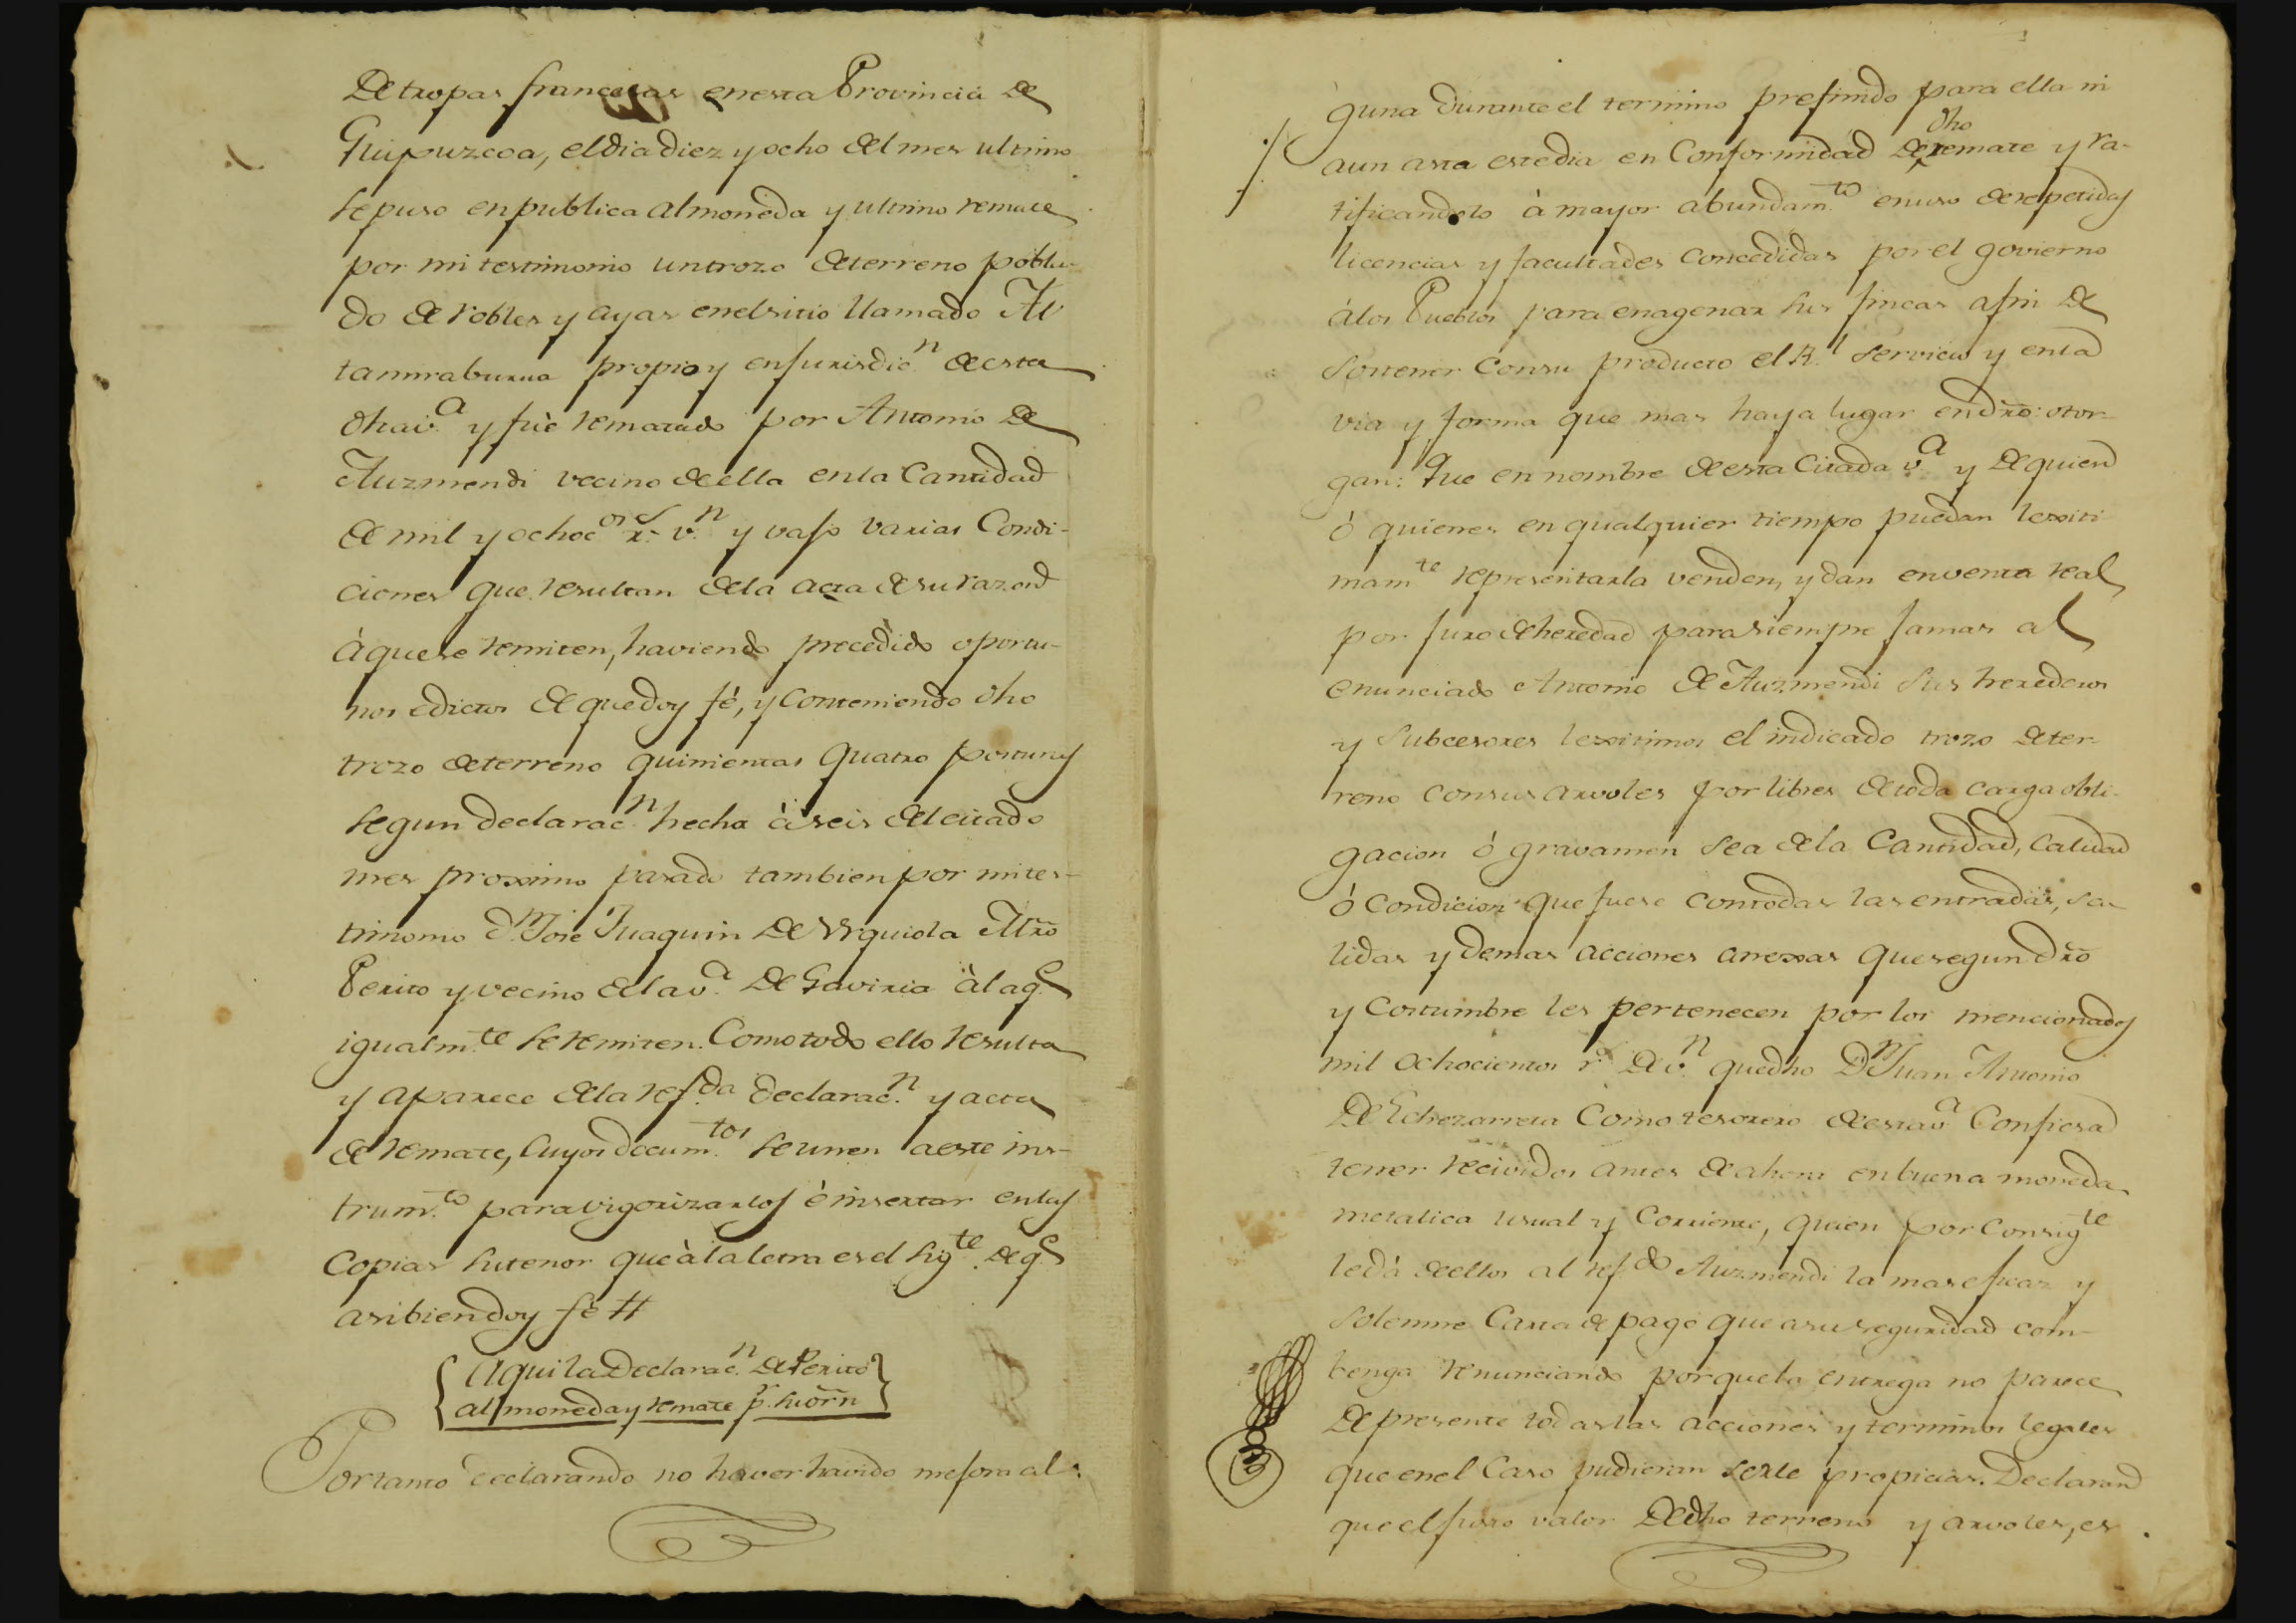 De tropas francesas en esta Provincia de
Guipuzcoa, el dia diez y ocho del mes ultimo
se puso en publica almoneda y ultimo remate
por mi testimonio un trozo de terreno pobla-
do de robles y ayas en el sitio llamado Al
tamiraburua propio y en jurisdicⁿ. de esta
dha v.ᵃ y fuè rematado por Antonio de
Auzmendi vecino de ella en la Cantidad
de mil y ochocᵒˢ rˢ. v.ⁿ y vajo varias Condi-
ciones que resultan de la acta de su razon
à que se remiten, haviendo precedido oportu-
nos edictos de que doy fé, y conteniendo dho
trozo de terreno quinientas quatro posturas
segun declaracⁿ. hecha à seis del citado
mes proximo pasado tambien por mi tes-
timonio Dⁿ. Jose Juaquin de Urquiola Mro
Perito y vecino de la v.ᵃ de Gaviria à la q.ᵉ
igualm.ᵗᵉ se remiten. Como todo ello resulta
y aparece de la ref.ᵈᵃ declarac.ⁿ y acta
de remate, cuyos docum.ᵗᵒˢ se unen a este ins-
trum.ᵗᵒ para vigorizarlos è insertar en las
copias su tenor que à la letra es el sig.ᵗᵉ de q.ᵉ
asi bien doy fè #
Aqui la Declarac.ⁿ del Perito
almoneda y remate p.ʳ su orñ
Por tanto declarando no haver havido mejora al-
guna durante el termino prefinido para ella ni
aun asta este dia en Conformidad de dho remate y ra-
tificandolo à mayor abundam.ᵗᵒ en uso de repetidas
licencias y facultades concedidas por el govierno
à los Pueblos para enagenar sus fincas a fin de
sostener con su producto el R.ˡ servicio y en la
via y forma que mas haya lugar en dro: otor-
gan: Que en nombre de esta citada v.ᵃ y de quien
ò quienes en qualquier tiempo puedan lexiti-
mam.ᵗᵉ representarla venden, y dan en venta real
por juro de heredad para siempre jamas al
enunciado Antonio de Auzmendi sus herederos
y subcesores lexitimos el indicado trozo de ter-
reno con sus arvoles por libres de toda carga obli-
gacion ò gravamen sea de la Cantidad, Calidad
ò condicion que fuese con todas las entradas, sa-
lidas y demas acciones anexas que segun dro
y Costumbre les pertenecen por los mencionados
mil ochocientos r.ˢ de v.ⁿ que dho Dⁿ Juan Antonio
de Echezarreta Como tesorero de esta v.ᵃ Confiesa
tener recividos antes de ahora en buena moneda
metalica usual y corriente, quien por consig.ᵗᵉ
le dà de ellos al ref.ᵈᵒ Auzmendi la mas eficaz y
solemne Carta de pago que a su seguridad com-
benga renunciando por que la entrega no parece
de presente todas las acciones y terminos legales
que en el Caso pudieran serle propicias. Declaran
que el justo valor de dho terreno y arvoles, es